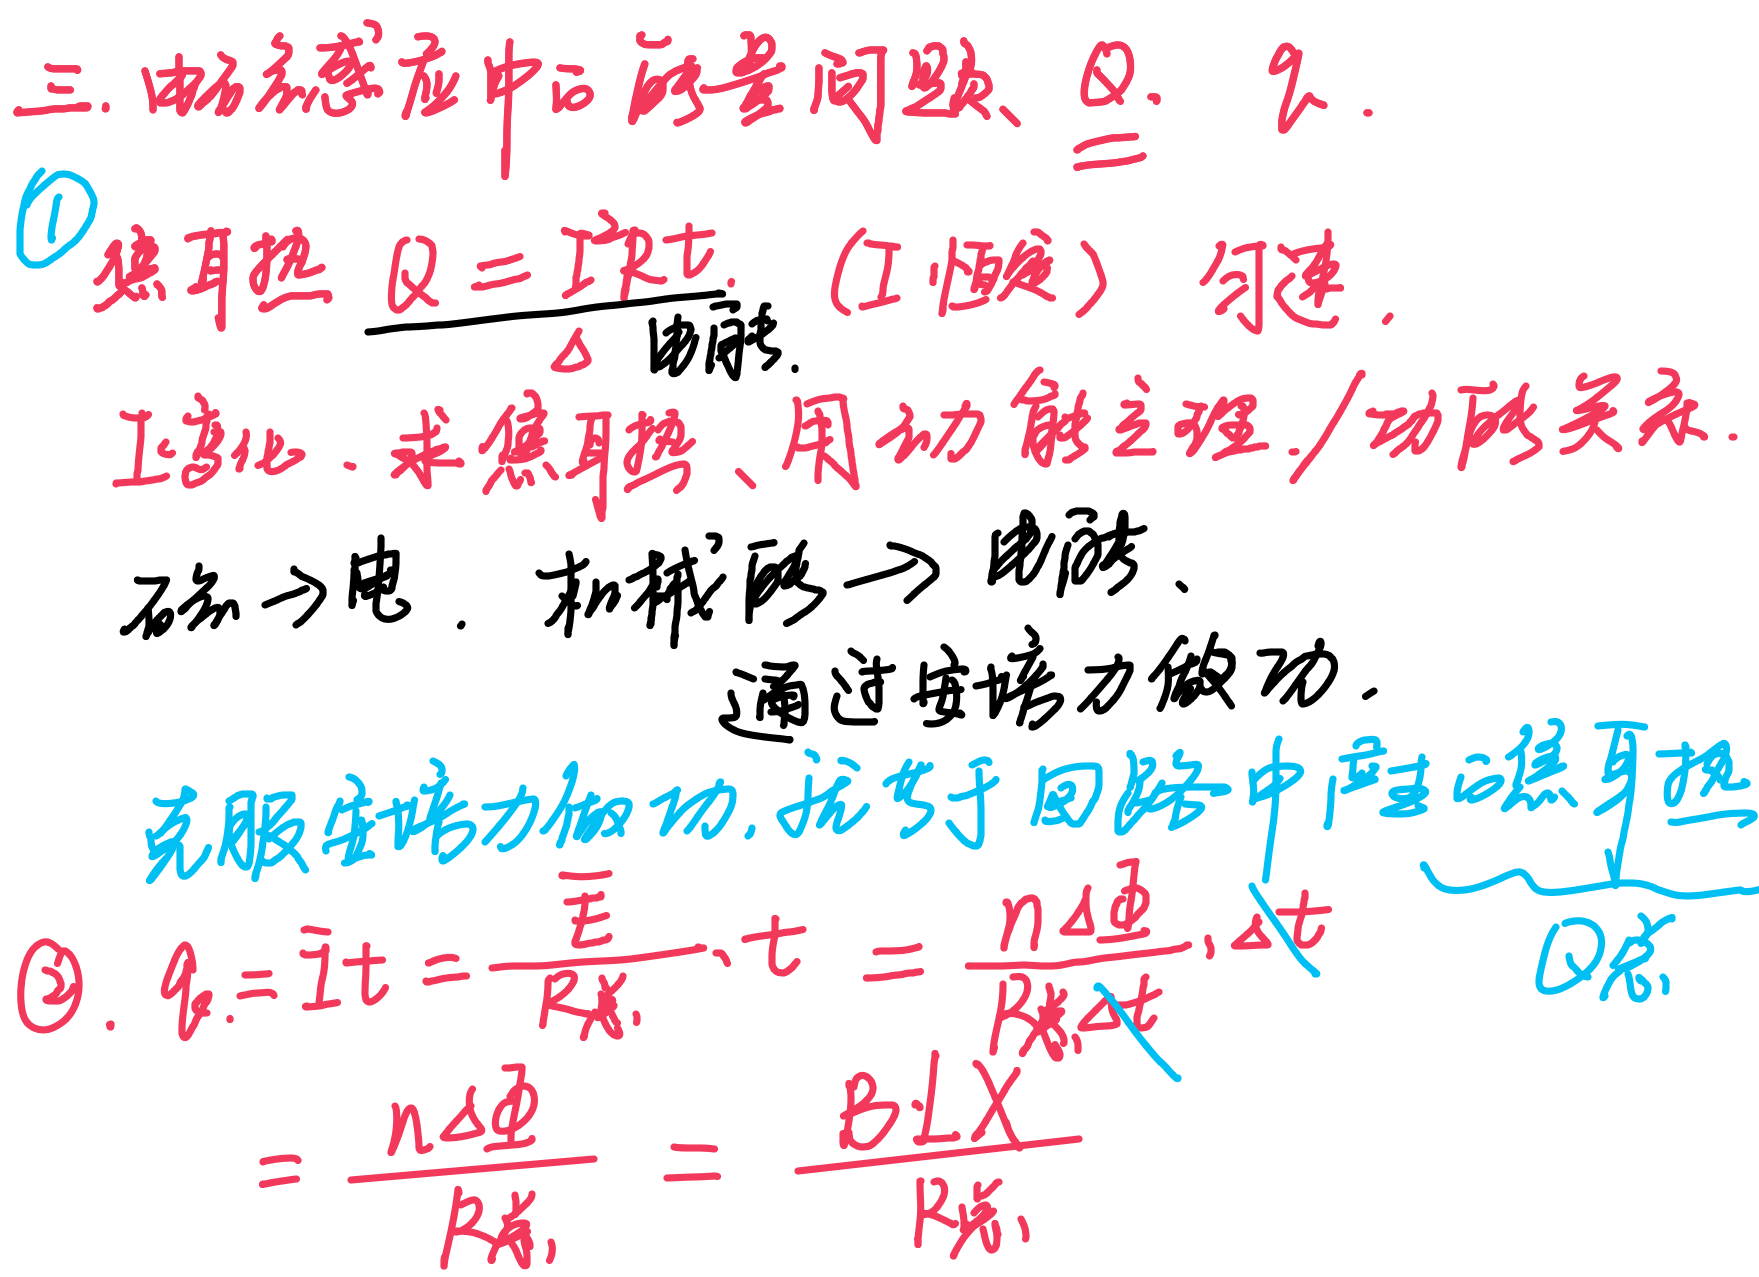 三. 电磁感应中的能量问题、Q. q.
① 焦耳热 Q = I²Rt. (I恒定) 匀速.
△ 电能.
I变化、求焦耳热、用动能定理./功能关系.
磁→电. 机械能→电能、
通过安培力做功.
克服安培力做功,就等于回路中产生的焦耳热
Q总
②. q. = Īt = Ē/R总 · t = nΔΦ/R总Δt · Δt
= nΔΦ/R总 = B·LX/R总